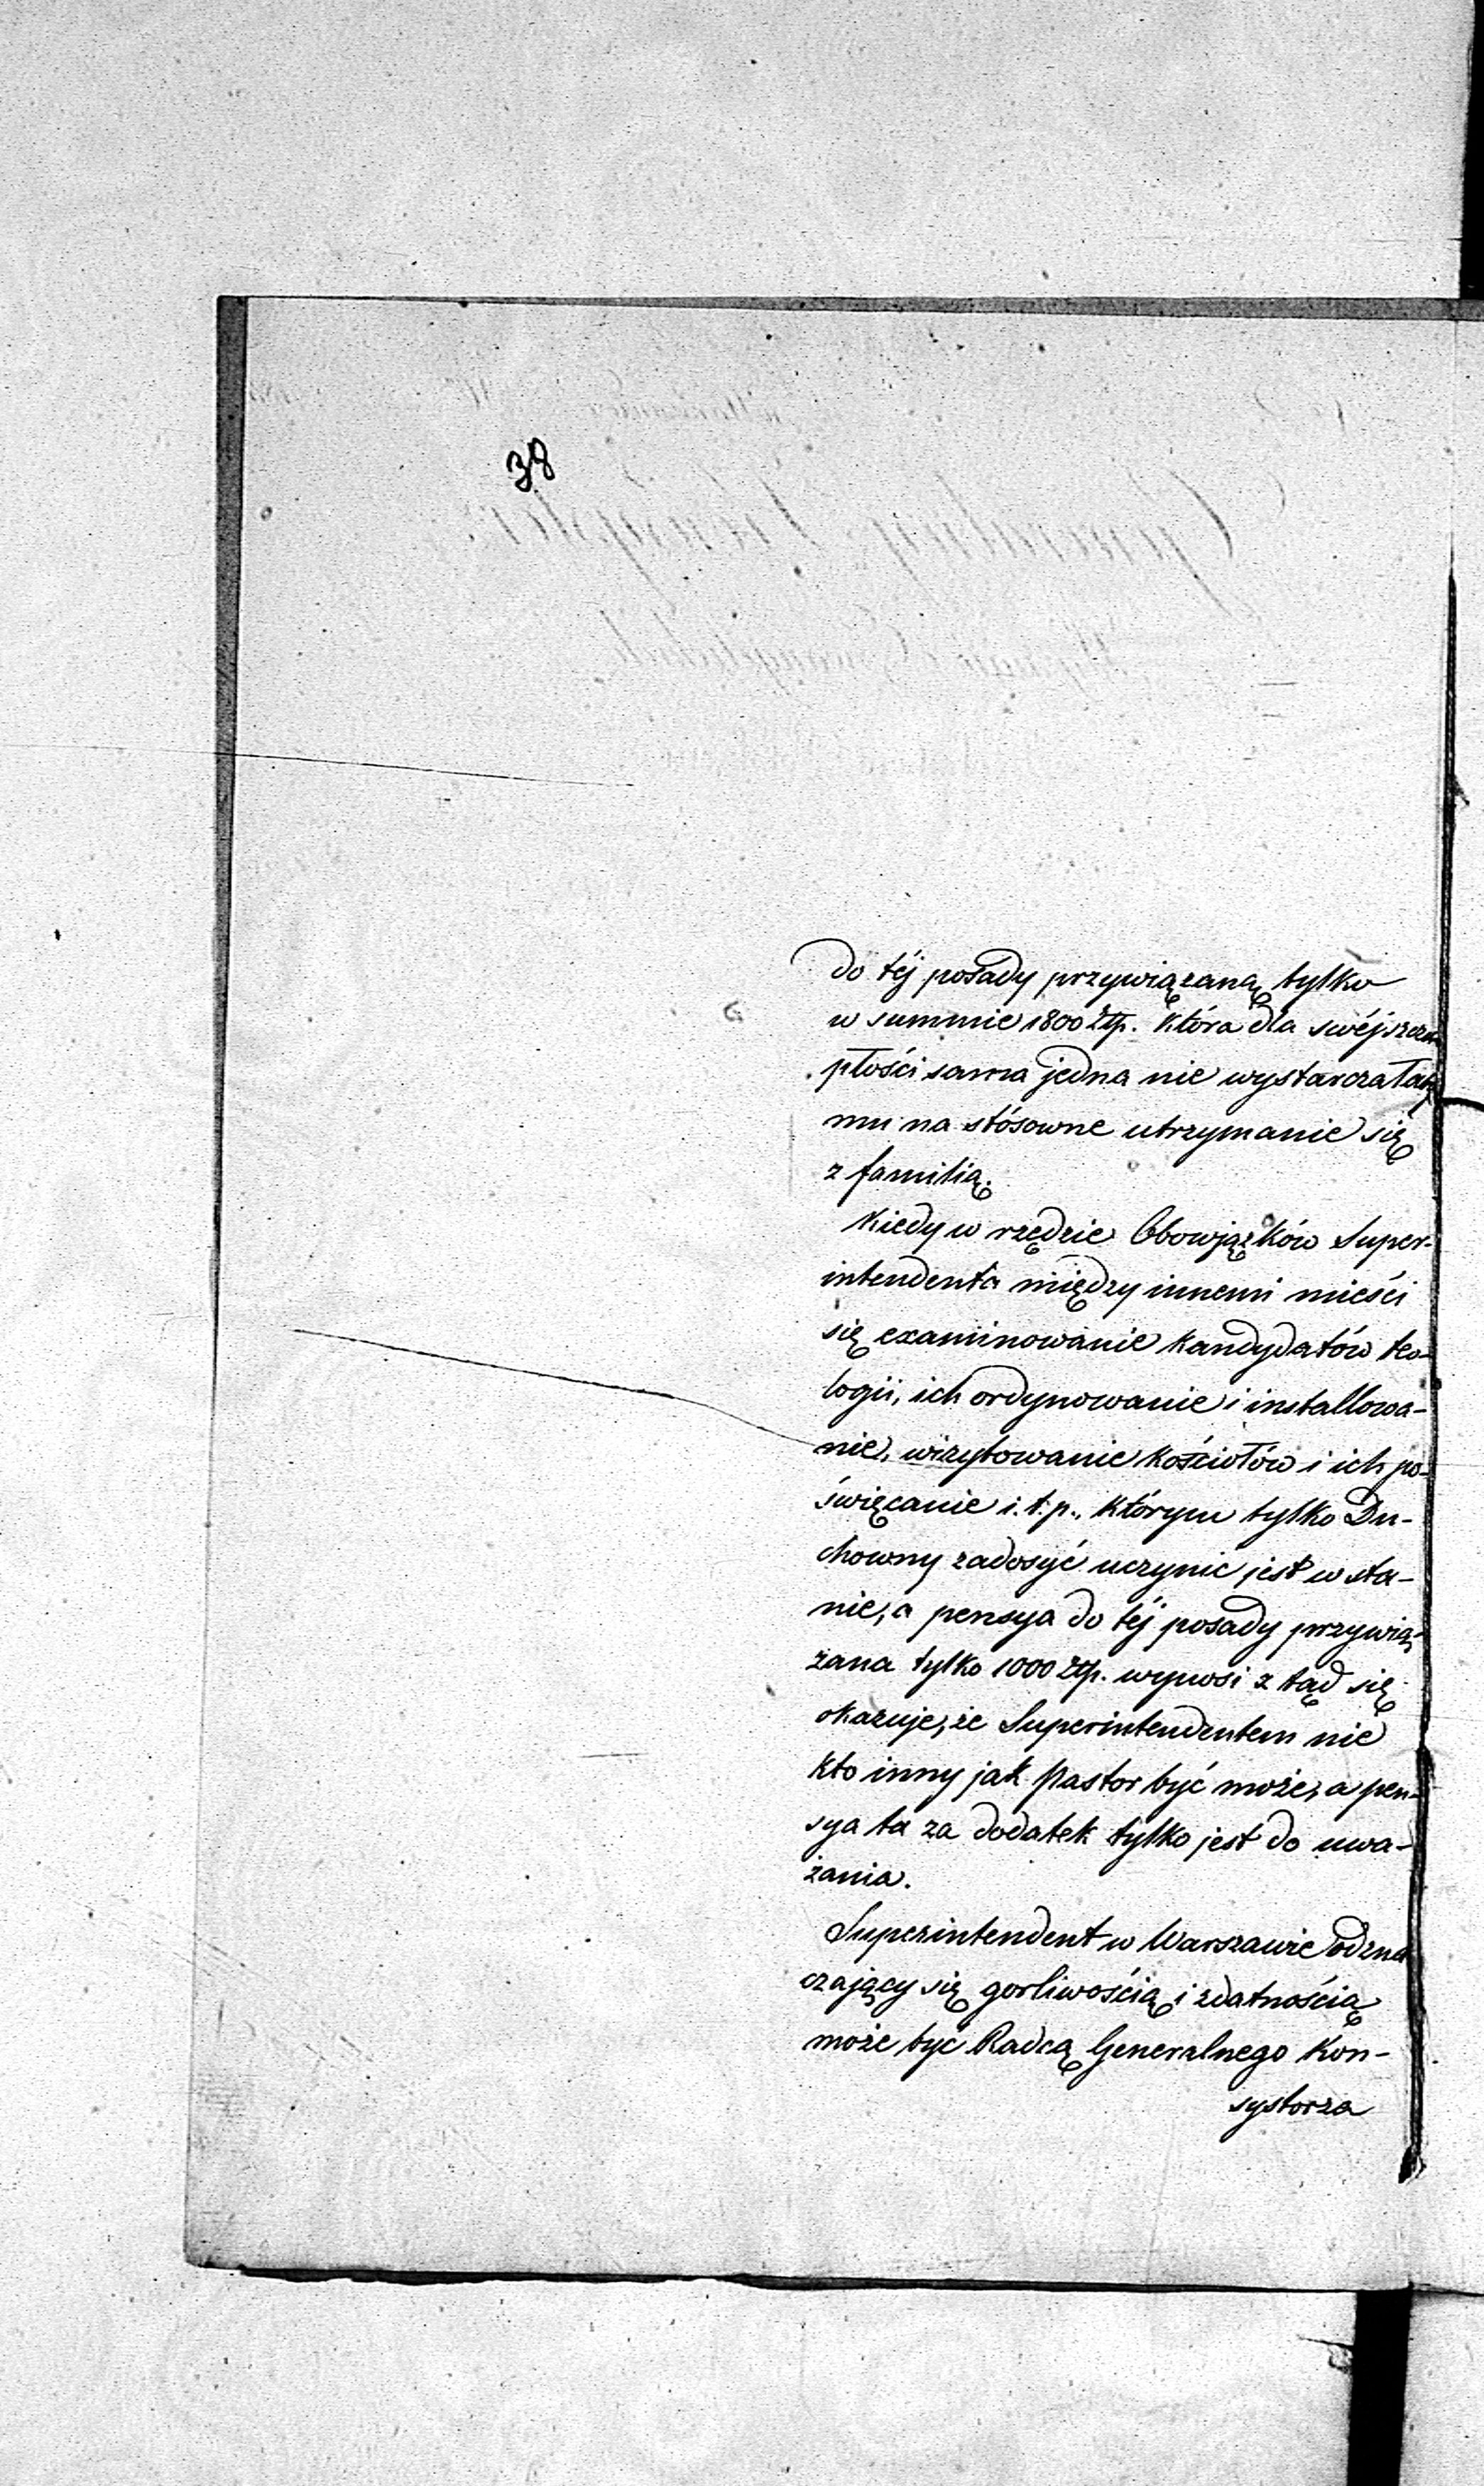 38
do téj posady przywiązaną tylko
w summie 1800 Złp. która dla swéj szczu-
płości sama jedna nie wystarczałaby
mu na stósowne utrzymanie się
z familią.
Kiedy w rzędzie Obowiązków Super-
intendenta między innemi mieści
się examinowanie kandydatów teo-
logii, ich ordynowanie i installowa-
nie, wizytowanie kościołów i ich po-
święcanie i. t. p., którym tylko Du-
chowny zadosyć uczynic jest w sta-
nie, a pensya do téj posady przywią-
zana tylko 1000 Złp. wynosi z tąd się
okazuje, że Superintendentem nie
kto inny jak Pastor być może, a pen-
sya ta za dodatek tylko jest do uwa-
żania.
Superintendent w Warszawie odzna
czający się gorliwością i zdatnością
może byc Radcą Generalnego Kon-
systorza